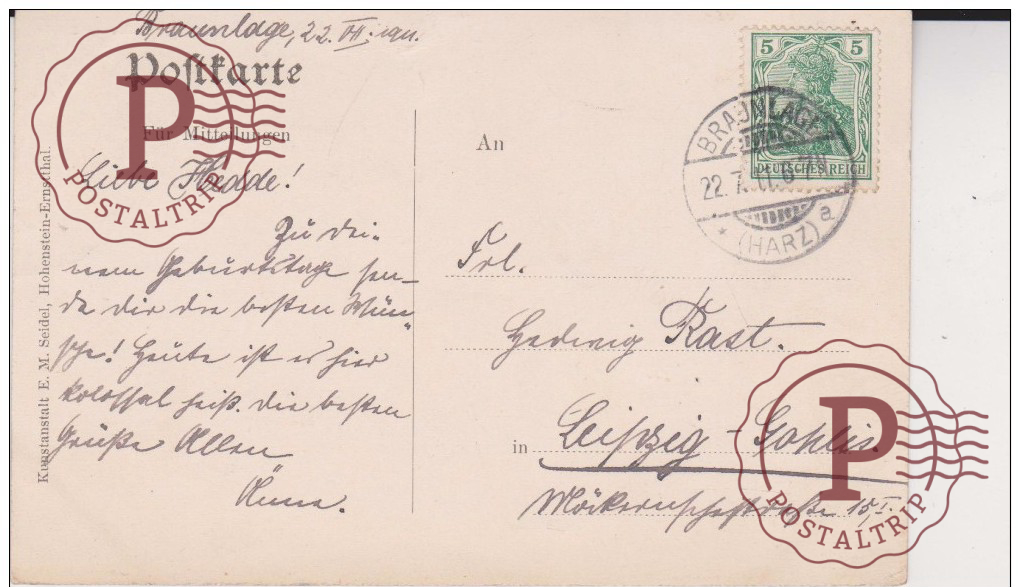 Braunlage, 22. VII. 1911.
Postkarte
Für Mitteilungen
Liebe Hedde!
Zu dei-
nem Geburtstage sen-
de dir die besten Wün-
sche! Heute ist es hier
kolossal heiß. Die besten
Grüße Allen
Änne.
Kunstanstalt E. M. Seidel, Hohenstein-Ernstthal.
An
Frl.
Hedwig Rast.
in Leipzig-Gohlis.
Möckernschestraße 15, I.
5 5
DEUTSCHES REICH
BRAUNLAGE
22.7.11. 6-7N
* (HARZ) a
P
POSTALTRIP
P
POSTALTRIP